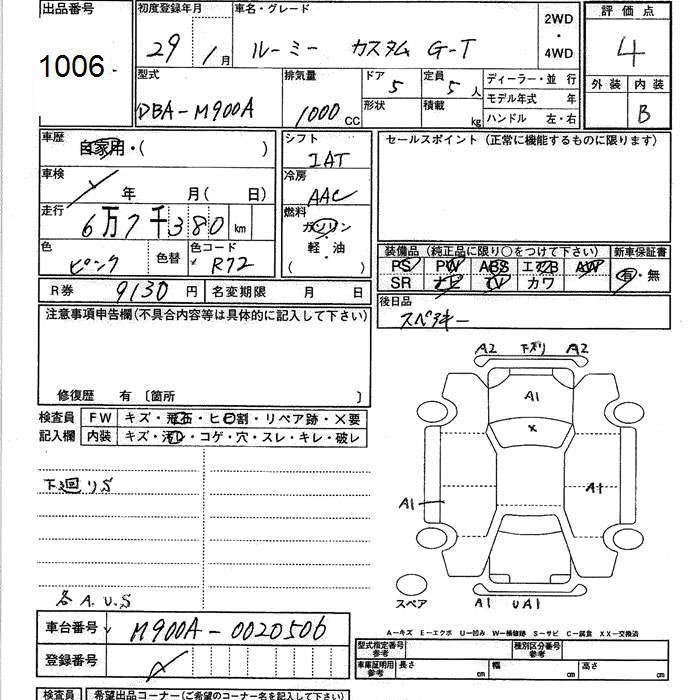 出品番号
1006
初度登録年月
29 1月
車名・グレード
ルーミー カスタム G-T
2WD
・
4WD
評価点
4
型式
DBA-M900A
排気量
1000 CC
ドア 5
定員 5 人
形状
積載 kg
ディーラー・並 行
モデル年式 年
ハンドル 左・右
外装 内装
B
車歴
自家用・( )
車検
年 月( 日)
走行
6万7千380 km
色
ピンク
色替
色コード
R72
シフト
IAT
冷房
AAC
燃料
ガソリン
・
軽油
・
( )
セールスポイント(正常に機能するものに限ります)
装備品(純正品に限り○をつけて下さい) 新車保証書
PS PW ABS エアB AW 有・無
SR ナビ TV カワ
R券 9130 円 名変期限 月 日
後日品
スペアキー
注意事項申告欄(不具合内容等は具体的に記入して下さい)
修復歴 有 〔箇所 〕
検査員
記入欄
FW キズ・飛石・ヒビ割・リペア跡・×要
内装 キズ・汚レ・コゲ・穴・スレ・キレ・破レ
下廻りS
各A.U.S
A2 下廻り A2
A1
×
A1
A1
スペア
A1 UA1
車台番号 M900A-0020506
登録番号
A－キズ E－エクボ U－凹み W－補修跡 S－サビ C－腐食 XX－交換済
型式指定番号
参考
種別区分番号
参考
車庫証明用
参考
長さ cm 幅 cm 高さ cm
検査員 希望出品コーナー(ご希望のコーナー名を記入下さい)